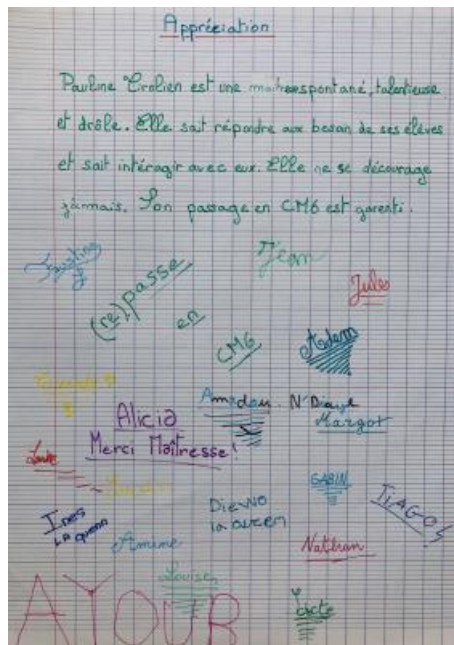 Appréciation
Pauline Tirolien est une maitresse spontané, talentieuse
et drôle. Elle sait répondre aux besoin de ses élèves
et sait intéragir avec eux. Elle ne se décourage
jamais. Son passage en CM6 est garenti.
Faustine
Jean
Jules
(re)passe
en
CM6
Adem
Amadou N'Diaye
Margot
Alicia
Merci Maîtresse!
GABIN
TIAGO
Ines
LA queen
Diewo
la queen
Amine
Nathan
Louise
AYOUB